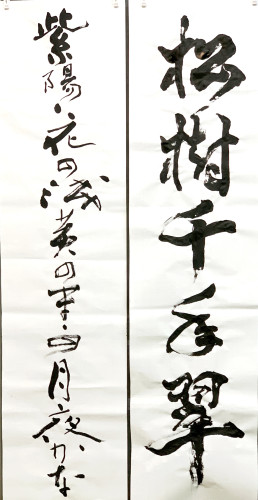 松樹千年翠
紫陽花の浅黄のまゝの月夜かな